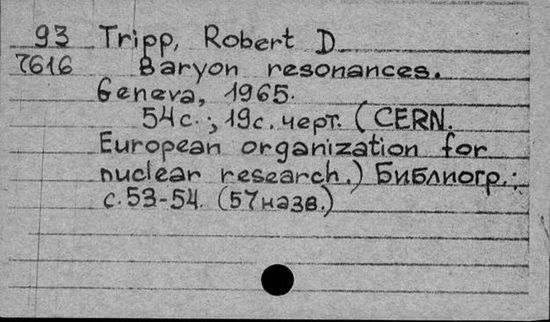 93 Tripp, Robert D.
7616 Baryon resonances.
Geneva, 1965.
54 с.; 19 с. черт. (CERN.
European organization for
nuclear research.) Библиогр.:
с. 53-54. (57 назв.)